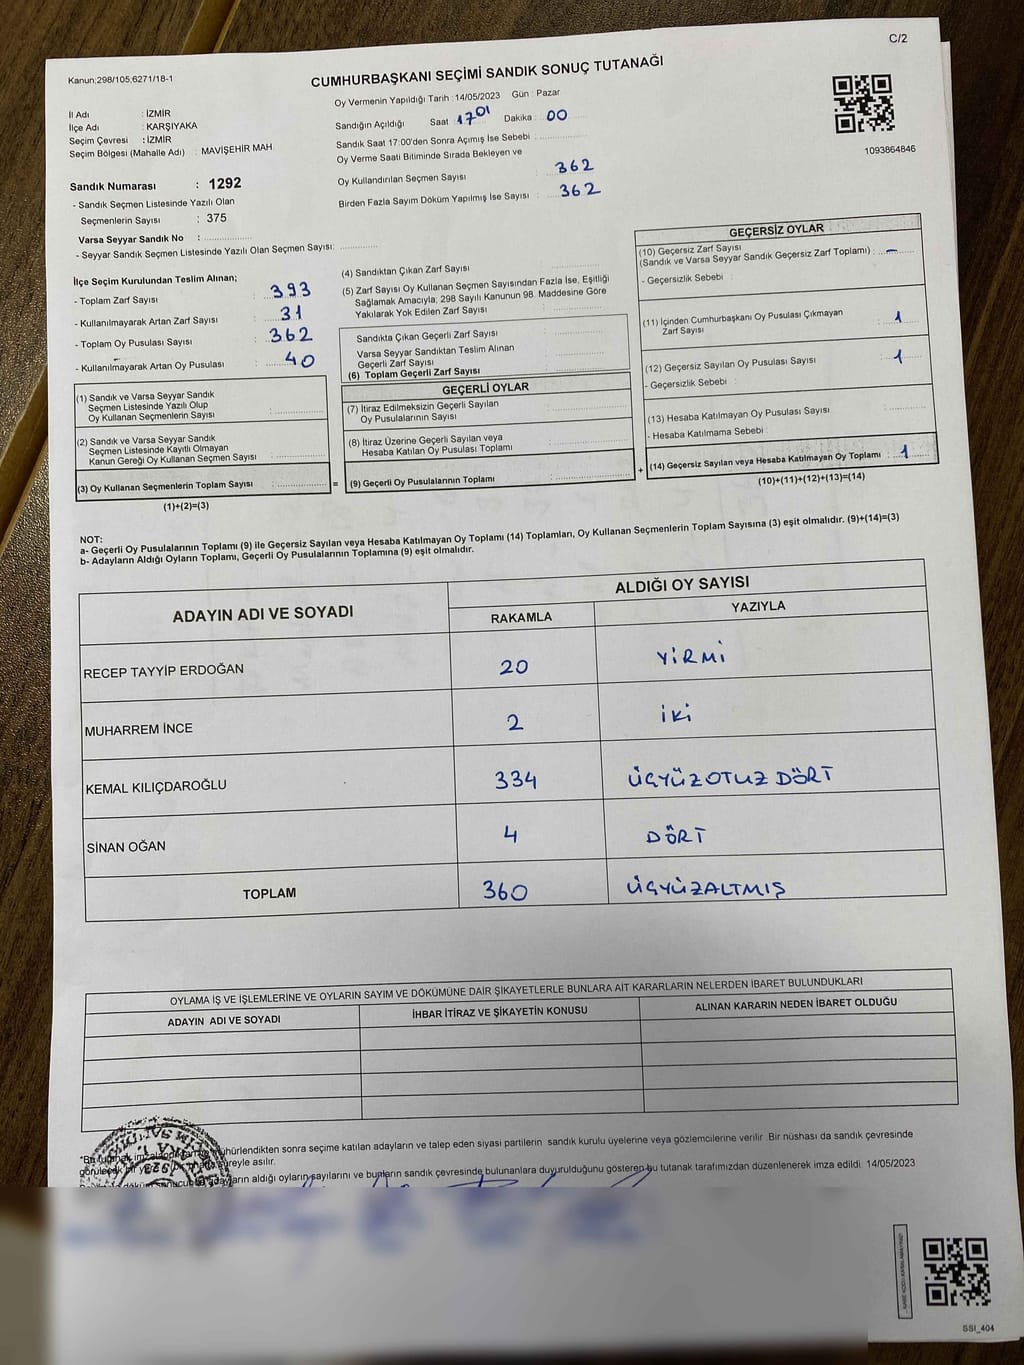 C/2
Kanun;298/105,6271/18-1
CUMHURBAŞKANI SEÇİMİ SANDIK SONUÇ TUTANAĞI
İl Adı : İZMİR
İlçe Adı : KARŞIYAKA
Seçim Çevresi : İZMİR
Seçim Bölgesi (Mahalle Adı) : MAVİŞEHİR MAH.
Oy Vermenin Yapıldığı Tarih :14/05/2023 Gün : Pazar
Sandığın Açıldığı Saat 1701 Dakika : 00
Sandık Saat 17:00'den Sonra Açımış İse Sebebi :
Oy Verme Saati Bitiminde Sırada Bekleyen ve
Oy Kullandırılan Seçmen Sayısı : 362
Birden Fazla Sayım Döküm Yapılmış İse Sayısı : 362
1093864846
Sandık Numarası : 1292
- Sandık Seçmen Listesinde Yazılı Olan
Seçmenlerin Sayısı : 375
Varsa Seyyar Sandık No :
- Seyyar Sandık Seçmen Listesinde Yazılı Olan Seçmen Sayısı:
İlçe Seçim Kurulundan Teslim Alınan;
- Toplam Zarf Sayısı : 393
- Kullanılmayarak Artan Zarf Sayısı : 31
- Toplam Oy Pusulası Sayısı : 362
- Kullanılmayarak Artan Oy Pusulası : 40
(1) Sandık ve Varsa Seyyar Sandık
Seçmen Listesinde Yazılı Olup
Oy Kullanan Seçmenlerin Sayısı :
(2) Sandık ve Varsa Seyyar Sandık
Seçmen Listesinde Kayıtlı Olmayan
Kanun Gereği Oy Kullanan Seçmen Sayısı :
(3) Oy Kullanan Seçmenlerin Toplam Sayısı :
(1)+(2)=(3)
(4) Sandıktan Çıkan Zarf Sayısı :
(5) Zarf Sayısı Oy Kullanan Seçmen Sayısından Fazla İse, Eşitliği
Sağlamak Amacıyla; 298 Sayılı Kanunun 98. Maddesine Göre
Yakılarak Yok Edilen Zarf Sayısı :
Sandıkta Çıkan Geçerli Zarf Sayısı :
Varsa Seyyar Sandıktan Teslim Alınan
Geçerli Zarf Sayısı :
(6) Toplam Geçerli Zarf Sayısı :
GEÇERLİ OYLAR
(7) İtiraz Edilmeksizin Geçerli Sayılan
Oy Pusulalarının Sayısı :
(8) İtiraz Üzerine Geçerli Sayılan veya
Hesaba Katılan Oy Pusulası Toplamı :
= (9) Geçerli Oy Pusulalarının Toplamı : +
GEÇERSİZ OYLAR
(10) Geçersiz Zarf Sayısı
(Sandık ve Varsa Seyyar Sandık Geçersiz Zarf Toplamı) : -
- Geçersizlik Sebebi :
(11) İçinden Cumhurbaşkanı Oy Pusulası Çıkmayan
Zarf Sayısı : 1
(12) Geçersiz Sayılan Oy Pusulası Sayısı : 1
- Geçersizlik Sebebi :
(13) Hesaba Katılmayan Oy Pusulası Sayısı :
- Hesaba Katılmama Sebebi :
(14) Geçersiz Sayılan veya Hesaba Katılmayan Oy Toplamı : 1
(10)+(11)+(12)+(13)=(14)
NOT:
a- Geçerli Oy Pusulalarının Toplamı (9) ile Geçersiz Sayılan veya Hesaba Katılmayan Oy Toplamı (14) Toplamları, Oy Kullanan Seçmenlerin Toplam Sayısına (3) eşit olmalıdır. (9)+(14)=(3)
b- Adayların Aldığı Oyların Toplamı, Geçerli Oy Pusulalarının Toplamına (9) eşit olmalıdır.
ADAYIN ADI VE SOYADI ALDIĞI OY SAYISI
RAKAMLA YAZIYLA
RECEP TAYYİP ERDOĞAN 20 YİRMİ
MUHARREM İNCE 2 İKİ
KEMAL KILIÇDAROĞLU 334 ÜÇYÜZOTUZ DÖRT
SİNAN OĞAN 4 DÖRT
TOPLAM 360 ÜÇYÜZALTMIŞ
OYLAMA İŞ VE İŞLEMLERİNE VE OYLARIN SAYIM VE DÖKÜMÜNE DAİR ŞİKAYETLERLE BUNLARA AİT KARARLARIN NELERDEN İBARET BULUNDUKLARI
ADAYIN ADI VE SOYADI İHBAR İTİRAZ VE ŞİKAYETİN KONUSU ALINAN KARARIN NEDEN İBARET OLDUĞU
sonra seçime katılan adayların ve talep eden siyasi partilerin sandık kurulu üyelerine veya gözlemcilerine verilir. Bir nüshası da sandık çevresinde
süreyle asılır.
aldığı oyların sayılarını ve bunların sandık çevresinde bulunanlara duyurulduğunu gösteren bu tutanak tarafımızdan düzenlenerek imza edildi. 14/05/2023
SSI_404